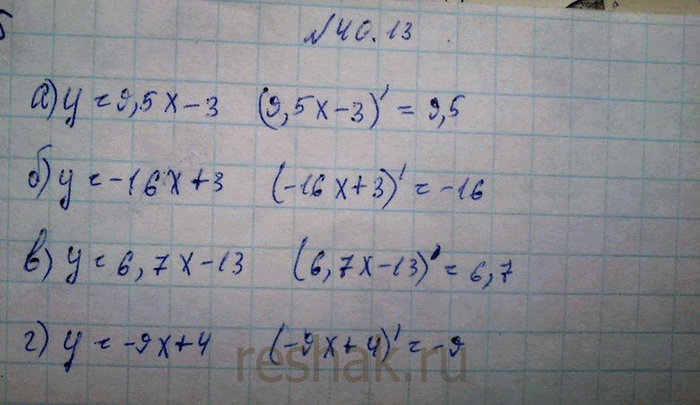 №40.13
а) y = 9,5x - 3 (9,5x - 3)' = 9,5
б) y = -16x + 3 (-16x + 3)' = -16
в) y = 6,7x - 13 (6,7x - 13)' = 6,7
г) y = -9x + 4 (-9x + 4)' = -9
reshak.ru